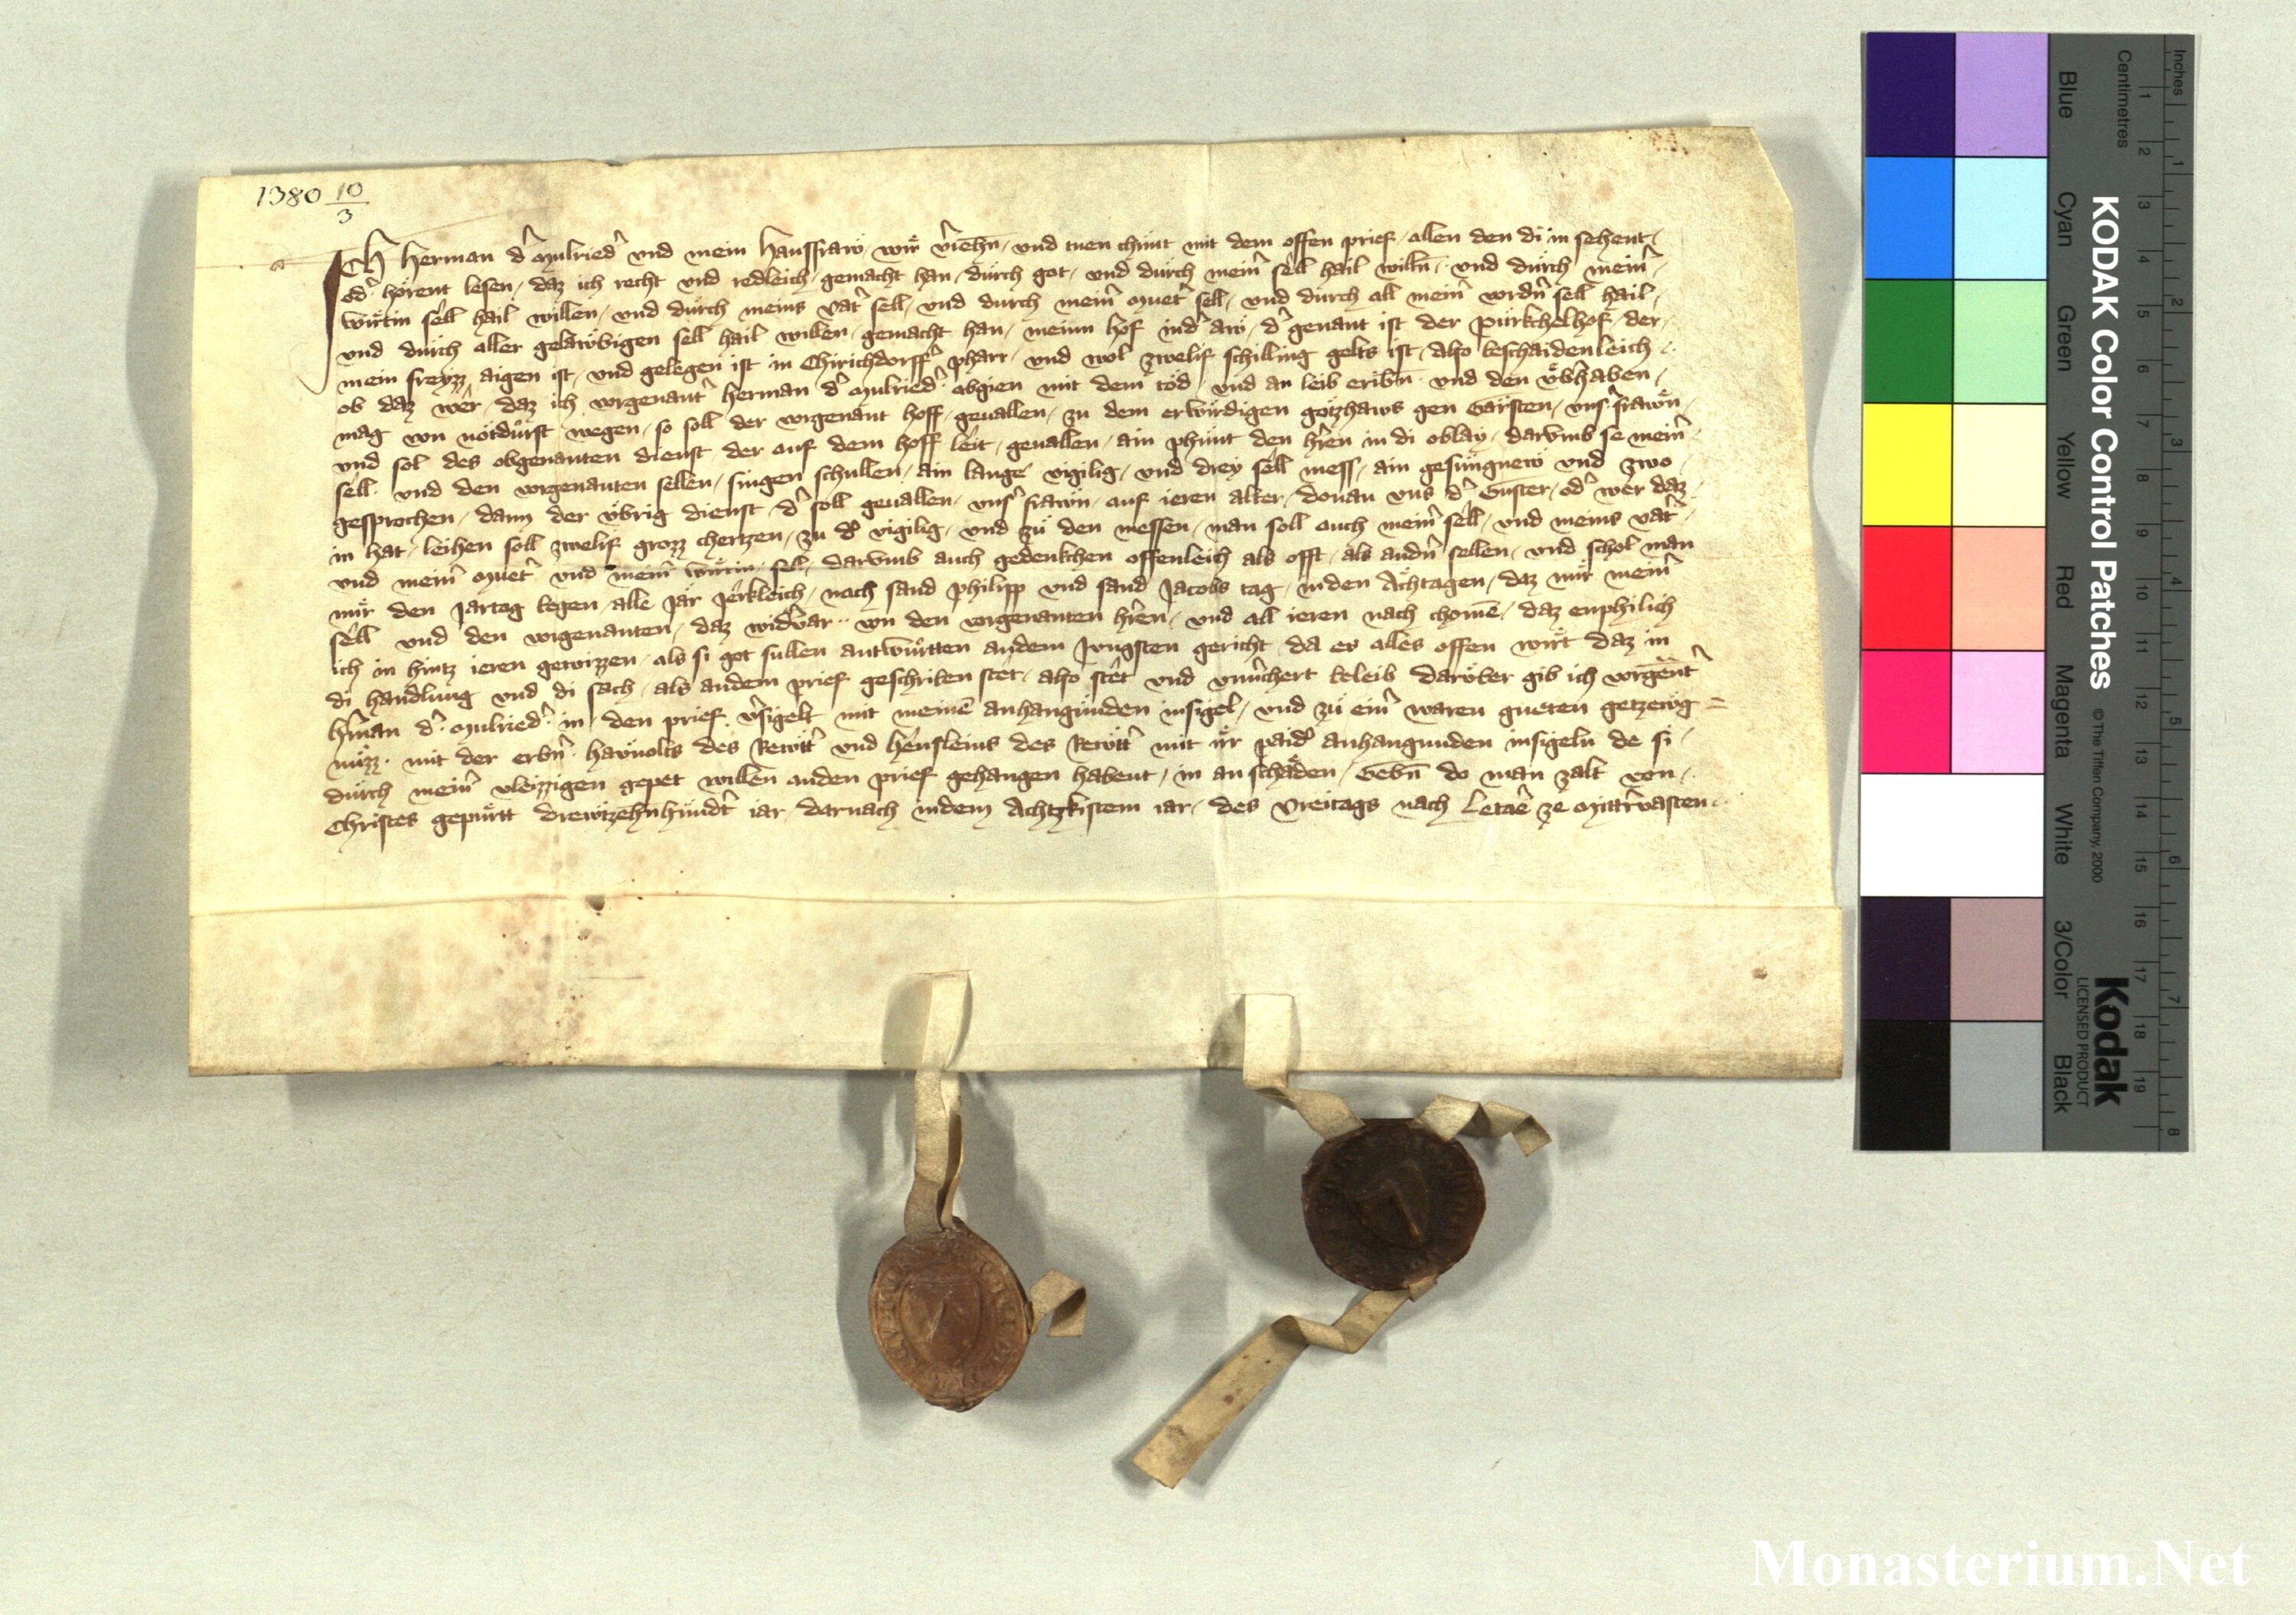 1380 10/3
Ich Herman d̂ Mulried̂ vnd mein Hausfraw wir v̂iehn̄ vnd tuen chunt mit dem offen prief allen den di in sehent
od̂ hörent lesen daz ich recht vnd redleich gemacht han durch got vnd durch mein̂ sell hail willn̄ vnd durch mein̂
wirtin sell hail willen vnd durch meins vat̂ sell vnd durch mein̂ muet̂ sell vnd durch all mein̂ vordn̂ sell hail
vnd durch aller gelawbigen sell hail willen gemacht han meinn hof ind̂ aw d̂ genant ist der pürkchelhof der
mein freyzz aigen ist vnd gelegen ist in Chirichdorffr̂ pharr vnd wol zwelif schilling gelts ist also beschaidenleich
ob daz wer daz ich vorgenant̂ Herman d̂ Mulried̂ abgien mit dem töd vnd an leib eribn̄ vnd den vb̂haben
mag von nötdurft wegen so soll der vorgenant hoff geuallen zu dem erwirdigen gotzhaws gen Gärsten vnŝ frawn
vnd sol des obgenanten dienst der auf dem hoff leit geuallen ain phunt den hr̂en in di oblay darvmb se mein̂
sell vnd den vorgenanten sellen singen schullen ain lange vigilig vnd drey sell mess ain gesungnew vnd zwo
gesprochen dann der vbrig dienst d̂ soll geuallen vnŝ frawn auf ieren alter douan vns d̂ Guster od̂ wer daz
in hat leihen soll zwelif grozz chertzen zu d̂ vigilig vnd zu den messen man soll auch mein̂ sell vnd meins vat̂
vnd mein̂ muet̂ vnd mein̂ wirtin sel darvmb auch gedenkchen offenleich als offt als andn̂ sellen vnd schol man
mir den Jartag legen alle Jar Jerkleich nach sand philipp vnd sand Jacobs tag inden Achtagen daz mir mein̂
sell vnd den vorgenanten daz wid̂var von den vorgenanten hr̂en vnd all ieren nach chomē daz enphilich
ich in hintz ieren gewizzen als si got sullen antwurtten andem Jungsten gericht da es alles offen wirt daz in
di handlung vnd di sach als andem prief geschriben stet also stet vnd vnuˆchert beleib darvber gib ich vorgēnt̂
Hr̂man d̂ Mulried̂ in den prief v̂sigelt mit meinē anhangunden insigel vnd zu ein̂ waren gueten getzewg=
nüzz mit der erbn̂ Hawnolts des Rewtt̂ vnd Hensleins des Rewtt̂ mit ir paid̂ anhangunden insigeln de si
durch mein̂ vleizzigen gepet willen anden prief gehangen habent in an schaden Gebn̄ do man zalt von
Christes gepürtt drewtzehnhundt̂ iar darnach indem Achtzkistem iar des Vreitags nach Letar̂e ze Mittr̂vasten
KODAK Color Control Patches © The Tiffen Company, 2000
Kodak
LICENSED PRODUCT
Inches
Centimetres
Blue
Cyan
Green
Yellow
Red
Magenta
White
3/Color
Black
1 2 3 4 5 6 7 8 9 10 11 12 13 14 15 16 17 18 19
1 2 3 4 5 6 7 8
Monasterium.Net